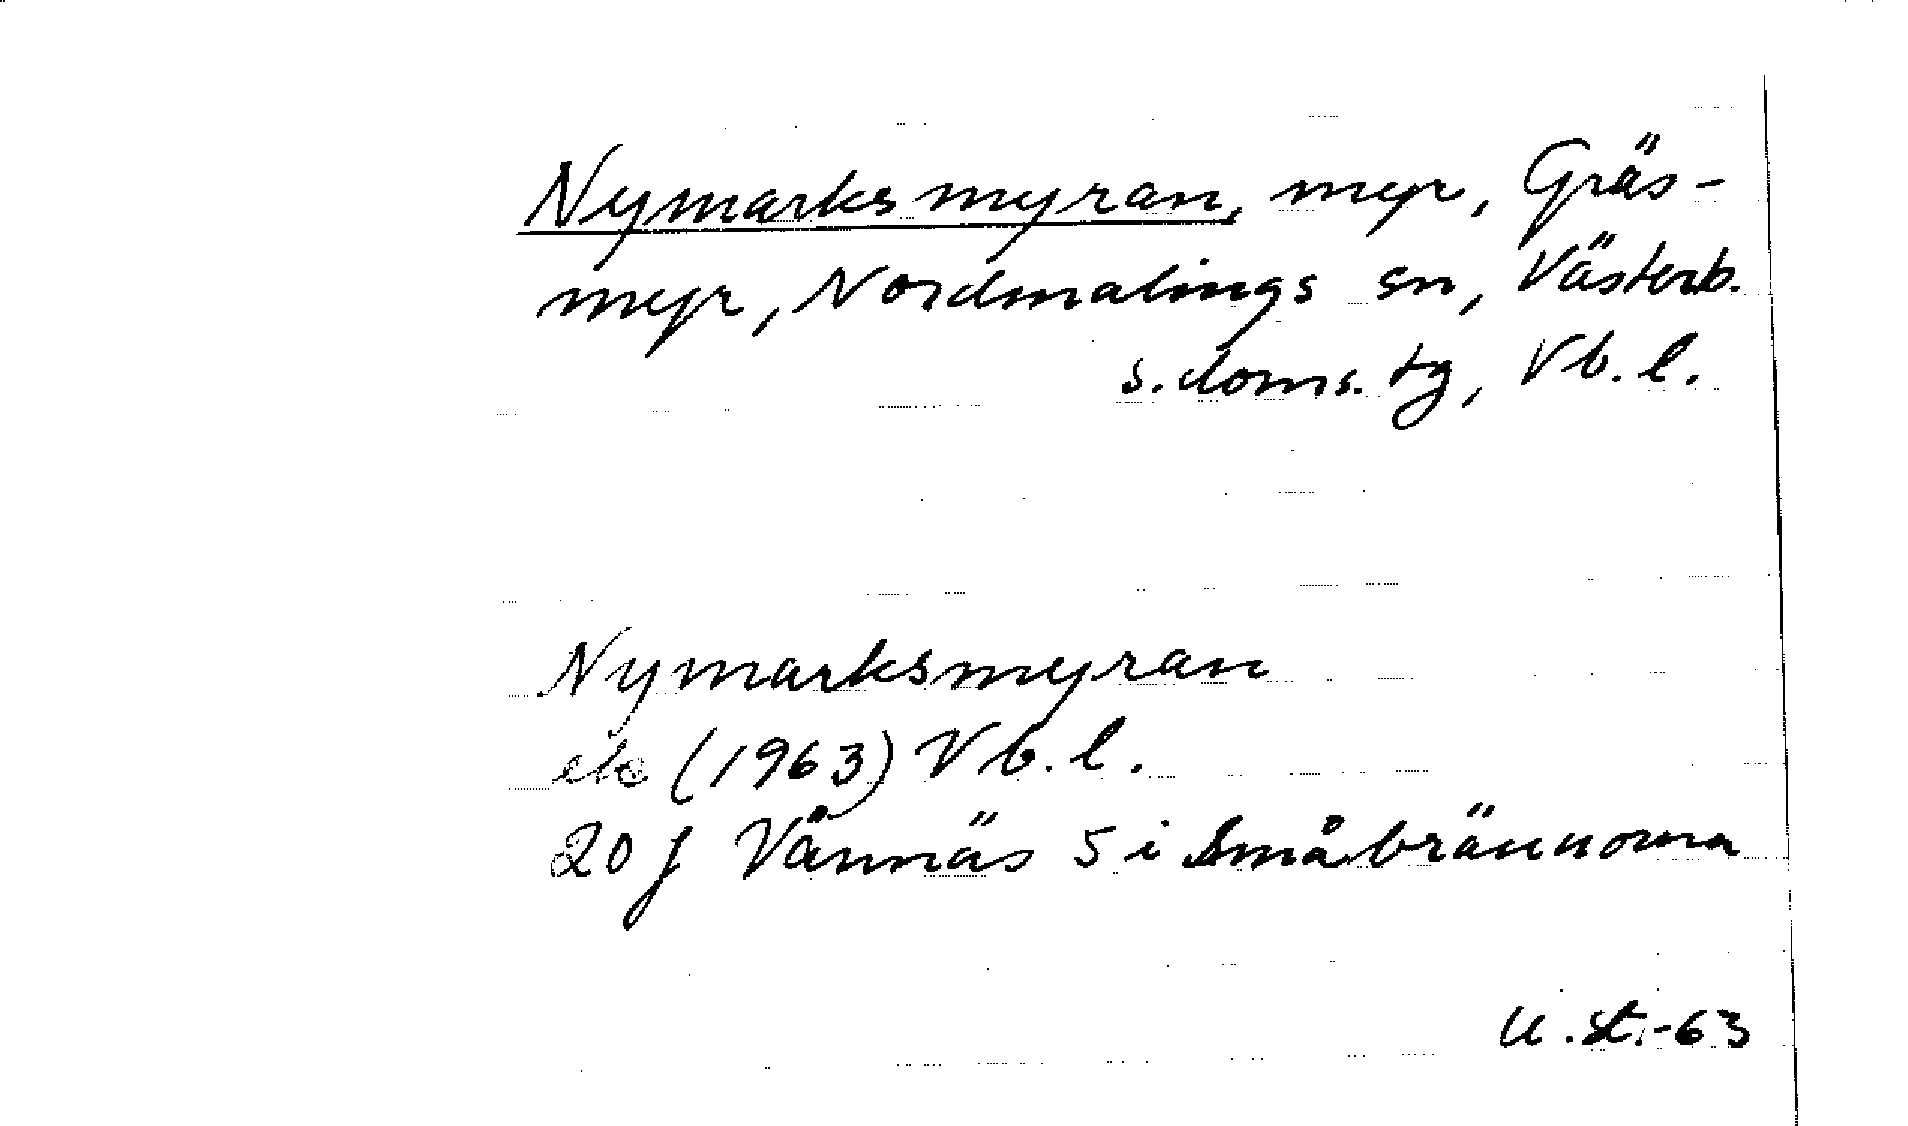 Nymarksmyran, myr, Gräs-
myr, Nordmalings sn, Västerb.
s. doms. tg, Vb. l.
Nymarksmyran
ek (1963) Vb. l.
20 J Vännäs 5 i Småbrännorna
U. St. -63